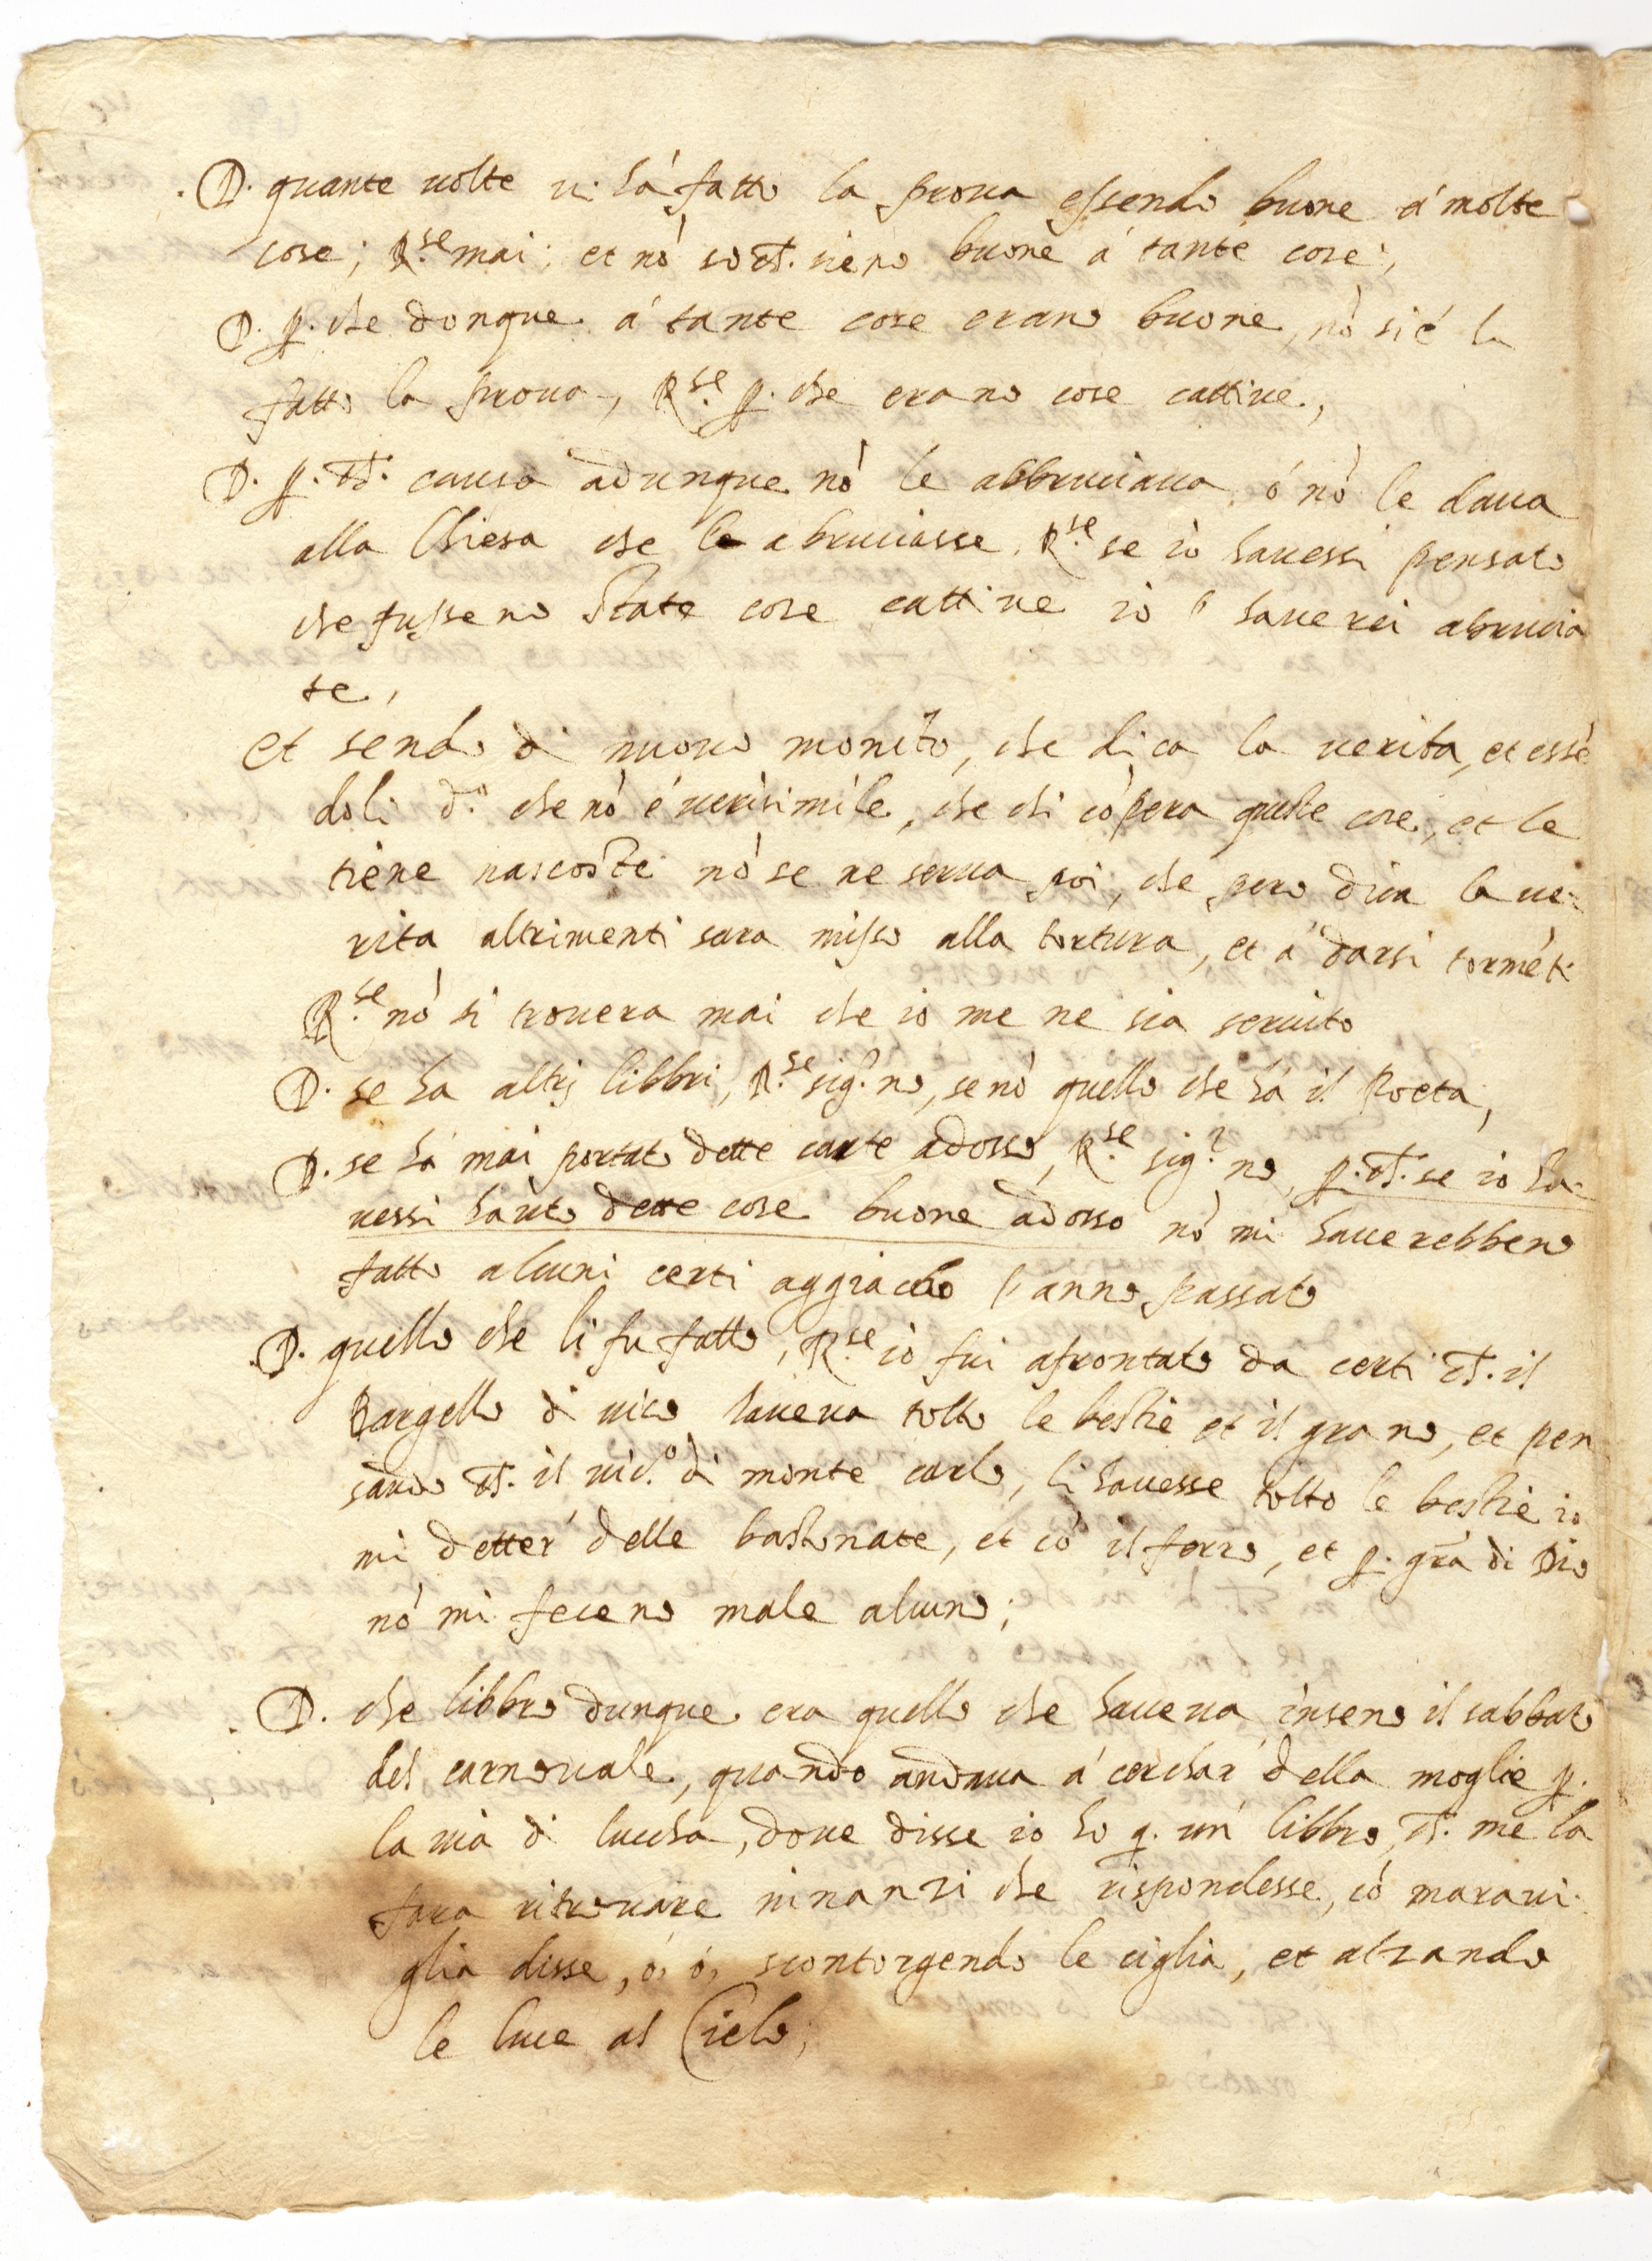 D. quante uolte ui há fatto la proua essendo buone á molte
cose; R.se mai; et nò so ch. sieno buone á tante cose;
D. p. che donque á tante cose erano buone, nò si é
fatto la proua, R.se p. che erano cose cattiue,
D. p. ch. causa adunque nò le abbruciaua, ó nò le daua
alla Chiesa che le abruciasse, R.se se io hauessi pensato
che fusseno state cose cattiue io l' hauerei abrucia
te,
et sendo di nuouo monito, che dica la uerita, et essè
doli d.o che nò é uerisimile, che chi còpera queste cose, et le
tiene nascoste nò se ne serua poi, che pero dica la ue=
rita altrimenti sara misso alla tortura, et á darsi tormèti
R.se nò si trouera mai che io me ne sia seruito
D. se ha altrj libbri, R.se sig.r no, se nò quello che há il Poeta,
D. se há mai portato dette carte adosso, R.se sig.r no, p. ch. se io ha=
uessi hauto dette cose buone adosso nò mi hauerebbeno
fatto alcuni certi aggiacho l' anno passato
D. quello che li fu fatto, R.se io fui afrontato da certi ch. il
Bargello di uico haueua tolto le bestie et il grano, et pen
sando ch. il uic.o di monte carlo, li hauesse tolto le bestie io
mi detter' delle bastonate, et cò il ferro, et p. gra di Dio
nò mi feceno male alcuno;
D. che libbro dunque era quello che haueua inseno il sabbato
del carnouale, quando andaua á cerchar' della moglie p.
la uia di luccha, doue disse io ho q. un' libbro, ch. me la
fara ritrouare ninanzi che rispondesse, cò maraui=
glia disse, ó, ó, scontorgendo le ciglia, et alzando
le luce al Cielo;